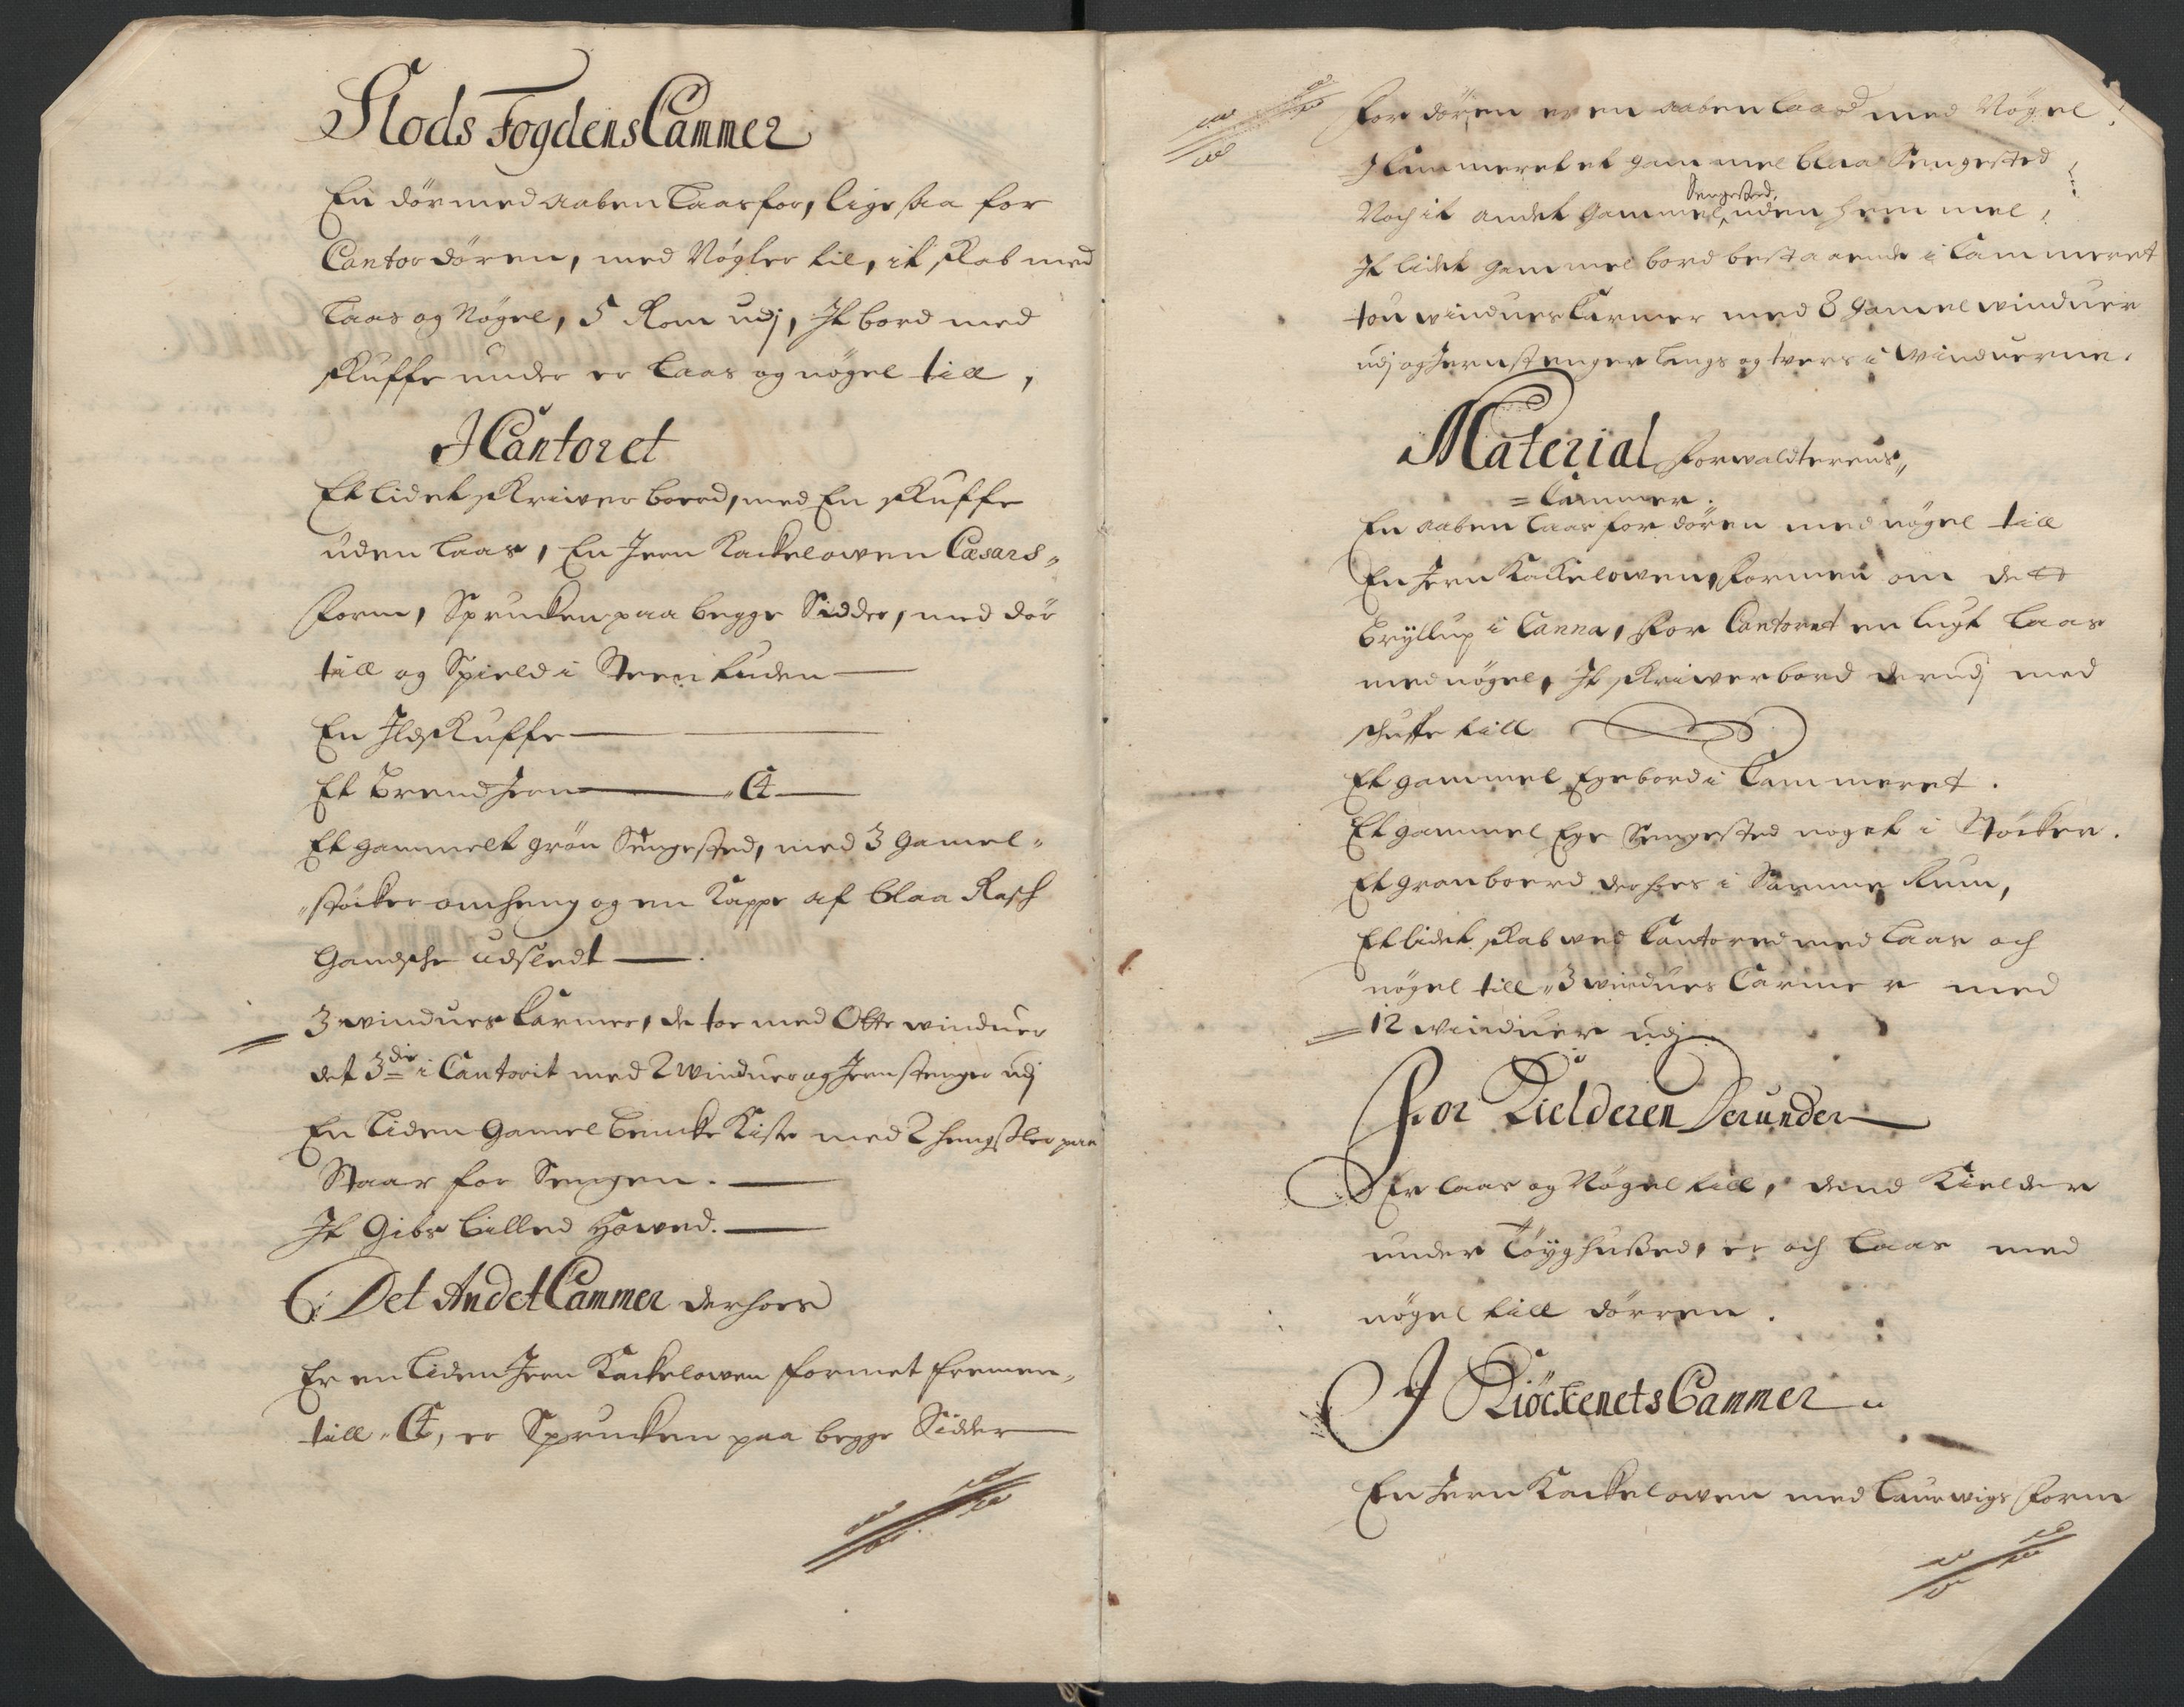 Slods Fogdens Cammer
En dör med aaben Laas for, lige saa for
Cantor dören, med Nögler til, it skab med
Laas og Nögel, 5 Rom udj, It bord med
skuffe under er Laas og nögel till,
I Cantoret
Et lidet skriver boord, med En skuffe
uden Laas, En Jern Kackelowen Cæsars
form, Sprucken paa begge Sidder, med dör
till og Spield i Steen luden
En Ildskuffe
Et Brend Jern C4
Et gammelt grön Sengested, med 3 gamel
støcker omheng og en Kappe af blaa Rash
gandsche udsledt
3 windues Karmer, de toe med Otte winduer
det 3die i Cantorit med 2 winduer og Jern stenger udj
En Liden gamel bencke Kiste med 2 hengsler paa
Staar for Sengen.
It Gibs billed Howed.
Det Andet Cammer derhoes
Er en Liden Jern Kackelowen formet fremen
till C4, er Sprucken paa begge Sidder
For dören er en aaben Laas med Nögel
I Cammeret et gammel blaa Sengested
Noch it andet gammel Sengested, uden hemmel,
It lidet gammel bord bestaaende i Cammeret
tou windues Karmer med 8 gamel winduer
udj og Jernstenger langs og twers i winduerne.
Material forwaldterens
Cammer.
En aaben Laas for dören med nögel till
En Jern Kackelowen, formen om dett
Bryllup i Canna, for Cantoret en lugt Laas
med nögel, It skriwerbord derudj med
schuffe till
Et gammel Egebord i Cammeret.
Et gammel Ege Sengested noget i Støcker.
Et gran boerd derhoes i Samme Rum,
Et lidet skab wed Cantored med Laas och
nögel till, 3 windues Carmer med
12 winduer udj
For Kielderen Derunder
Er laas og Nögel till, dend Kielder
under Töyghused, er och Laas med
nögel till dörren.
I Kiöckenets Cammer
En Jern Kackelowen med Laurwigs form